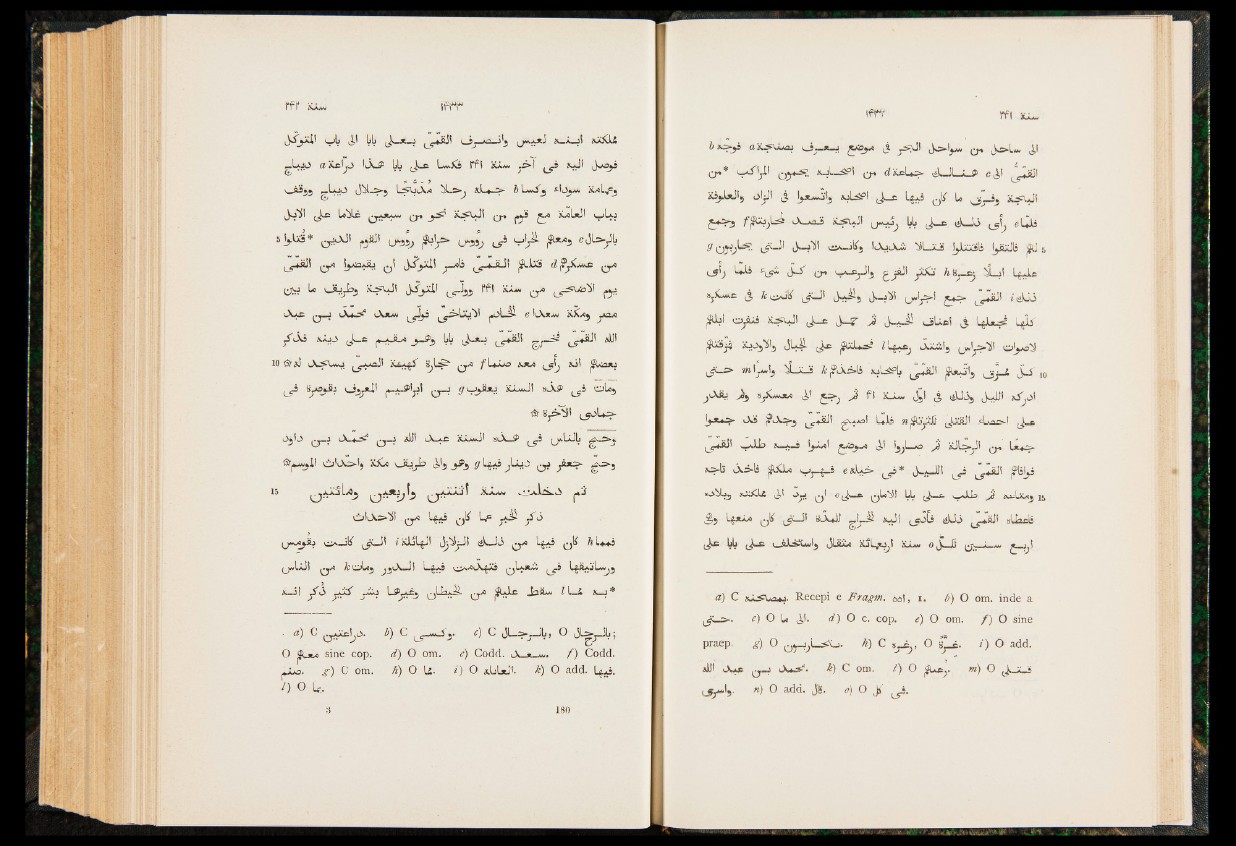 سنة ٢٤١ ١٤٣٢
الى ساحل من سواحل البحر فى موضع يعرف بصنجة a فوجّه b
القمّى c الى هنالك جماعة d من اصحابه يحمون المراكب *من
البجة وفرّق ما كان فيها على اصحابه واتّسعوا فى الزاد والعلوفة
فلمّا e رأى ذلك على بابا رئيس البجة قصد لمحاربتهم f وجمع
5 لهم فالتقوا فاقتتلوا قتالا شديدا وكانت الابل التى يحاربون g
عليها ابلا زعرة h تكثر الفزع والرعب من كلّ شىء فلمّا رأى
ذلك i القمّى جمع اجراس الابل والخيل التى كانت k فى عسكره
كلّها فجعلها فى اعناق الخيل ثم حمل على البجة فنفرت ابلهم
لاصوات الاجراس واشتدّ رعبها l فحملتهم على الجبال والاودية فمزّقتهم
10 كلّ ممزّق واتّبعهم القمّى باصحابه فاخذهم k قتلا واسرا m حتى
ادركه الليل وذلك فى اوّل سنة ٢٤١ ثم رجع الى معسكره ولم يقدر
على احصاء القتلى لكثرتهم n فلمّا اصبح القمّى وجدهم قد جمعوا
جمعا من الرجّالة ثم صاروا الى موضع امنوا فيه طلب القمّى
فوافاهم القمّى فى الليل *فى خيله e فهرب ملكهم فاخذ تاجه
15 ومتاعه ثم طلب على بابا الامان على e ان يردّ الى مملكته وبلاده
فاعطاه القمّى ذلك فأدّى اليه الخراج للمدّة التى كان منعها وهى
اربع سنين لكلّ o سنة اربعمائة مثقال واستخلف على بابا على
a) C. Recepi e Fragm. ool, 1. b) O om. inde a
حتى. c) O ما الى. d) O c. cop. e) O om. f) O sine
praep. g) O. h) C زغره, O. i) O add.
محمد بن عبد الله. k) C om. l) O رعبهم. m) O قتلى
واسرى. n) O add. قال. o) O فى كل.
سنة ٢٤٢ ١٤٣٣
مملكته ابنه لعيس وانصرف القمّى بعلى بابا الى باب المتوكّل
فوصل اليه فى آخر سنة ٢٤١ فكسا على بابا هذا درّاعة a ديباج
وعمامة سوداء وكسا b جمله رحلا مدبّجا وجلال ديباج ووقف
بباب العامّة مع قوم من البجة نحو من سبعين غلاما على الابل
5 بالرحال c ومعهم الحراب فى رؤوس حرابهم رؤوس القوم الذين *قتلوا
من عسكرهم d قتلهم القمّى فامر المتوكّل ان يقبضوا من القمّى
يوم الاضحى من سنة ٢٤١ وولّى المتوكّل البجة وطريق ما بين
مصر ومكّة سعدا e الخادم الايتاخى فولّى سعد محمّد بن عبد
الله القمّى فخرج القمّى بعلى بابا وهو مقيم على دينه فذكر
10 بعضهم انه رأى معه صنما f من حجارة كهيئة الصبىّ يسجد له ۞
ومات فى هذه السنة يعقوب g بن ابراهيم المعروف بقوصرة فى
جمادى الآخرة ۞
وحجّ بالناس فى هذه السنة عبد الله بن محمّد بن داود
وحجّ جعفر بن دينار فيها g وهو والى طريق مكّة واحداث الموسم ۞
15 ثم دخلت سنة اثنتين وأربعين ومائتين
ذكر الخبر عما كان فيها من الاحداث
فمما h كان فيها من ذلك الزلازل الهائلة i التى كانت بقومس
ورساتيقها فى شعبان فتهدّمت فيها الدور ومات k من الناس
*به l مما سقط عليهم من الحيطان وغيرها بشر كثير ذُكر انه
a) C دراعتين. b) C وكسى. c) C بالرجال, O بالرحال;
O معهم sine cop. d) O om. e) Codd. سعد. f) Codd.
صنم. g) C om. h) O مما. i) O. k) O add. فيها.
l) O بما.
3 180